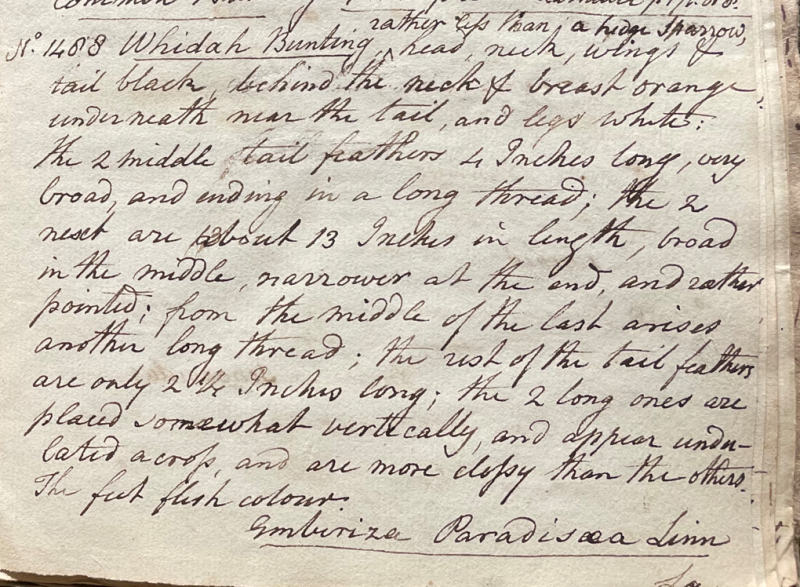 rather less than a hedge sparrow,
No. 1488 Whidah Bunting, head, neck, wings &
tail black, behind the neck & breast orange,
underneath near the tail, and legs white:
the 2 middle tail feathers 4 Inches long, very
broad, and ending in a long thread; the 2
next are about 13 Inches in length, broad
in the middle, narrower at the end, and rather
pointed; from the middle of the last arises
another long thread; the rest of the tail feathers
are only 2 1/4 Inches long; the 2 long ones are
placed somewhat vertically, and appear undu-
lated across, and are more clossy than the others.
The feet flesh colour.
Emberiza Paradisæa Linn